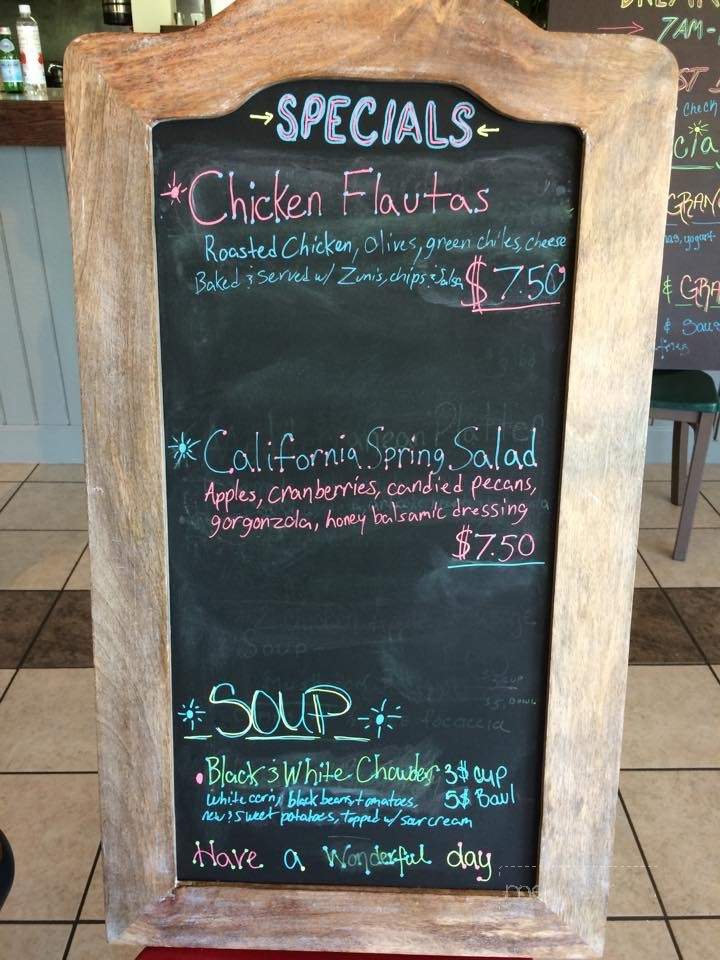 →SPECIALS←
Chicken Flautas
Roasted Chicken, olives, green chiles, cheese
Baked & Served w/ Zuni's, chips & Salsa $7.50
California Spring Salad
Apples, cranberries, candied pecans,
gorgonzola, honey balsamic dressing
$7.50
SOUP
Black & White Chowder 3$ cup
white corn, black beans, tomatoes, 5$ Bowl
new & sweet potatoes, topped w/ sour cream
Have a Wonderful day
7AM-
Check
GRAN
yogurt
& GRA
& Saus